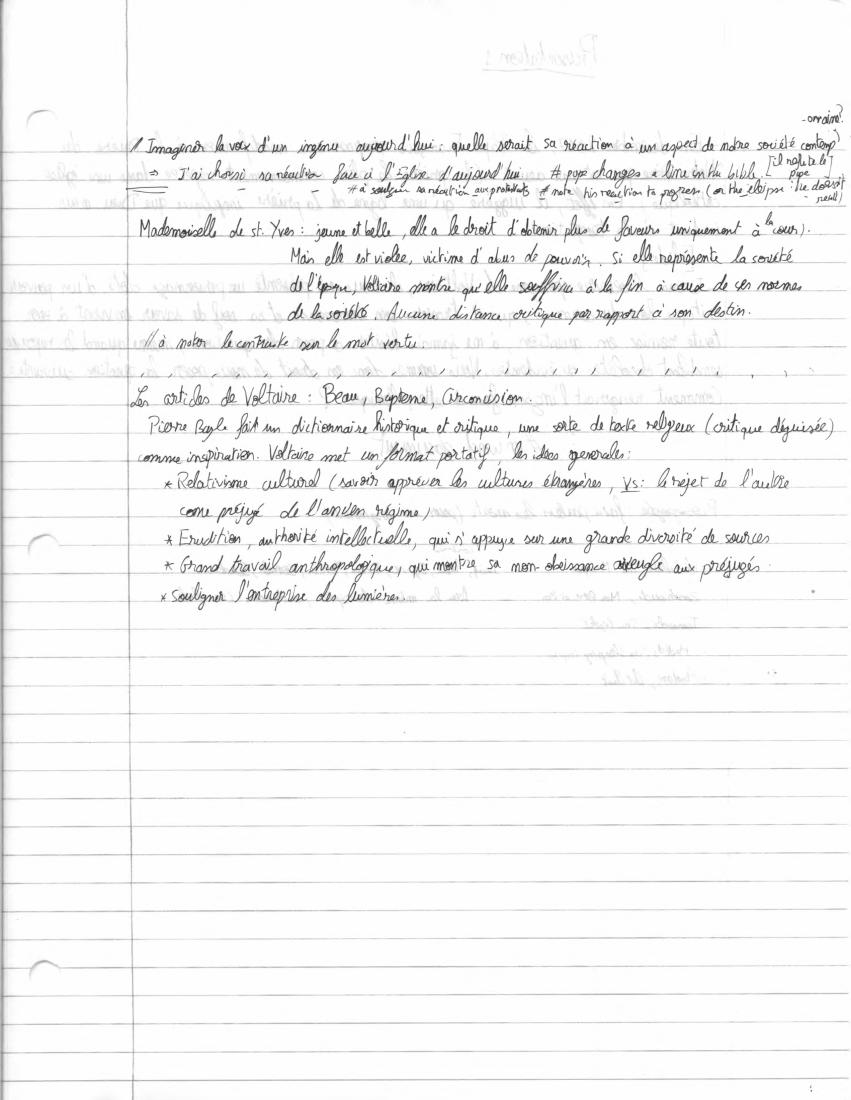 // Imaginer la voix d'un ingénu aujourd'hui : quelle serait sa réaction à un aspect de notre société contemporaine?
⇒ J'ai choisi sa réaction face à l'Eglise d'aujourd'hui # pope changes a line in the bible [il refute le pope]
# à souligner sa réaction aux protestants # note his reaction to progress (or the elipse : he doesn't result)
Mademoiselle de st. Yves : jeune et belle, elle a le droit d'obtenir plus de faveurs uniquement à la cour).
Mais elle est violée, victime d'abus de pouvoir. Si elle représente la société
de l'époque, Voltaire montre que elle souffrira à la fin à cause de ces normes
de la société. Aucune distance critique par rapport à son destin.
// à noter le contraste sur le mot vertu.
Les articles de Voltaire : Beau, Bapteme, Circoncision.
Pierre Bayle fait un dictionnaire historique et critique, une sorte de texte religieux (critique déguisée)
comme inspiration. Voltaire met un format portatif, les idees generales:
* Relativisme culturel (savoir apprécier les cultures étrangères, Vs: le rejet de l'autre
come préjugé de l'ancien régime)
* Erudition, authorité intellectuelle, qui s'appuye sur une grande diversité de sources
* Grand travail anthropologique, qui montre sa non-obeissance aveugle aux préjugés.
* Souligner l'entreprise des lumières.